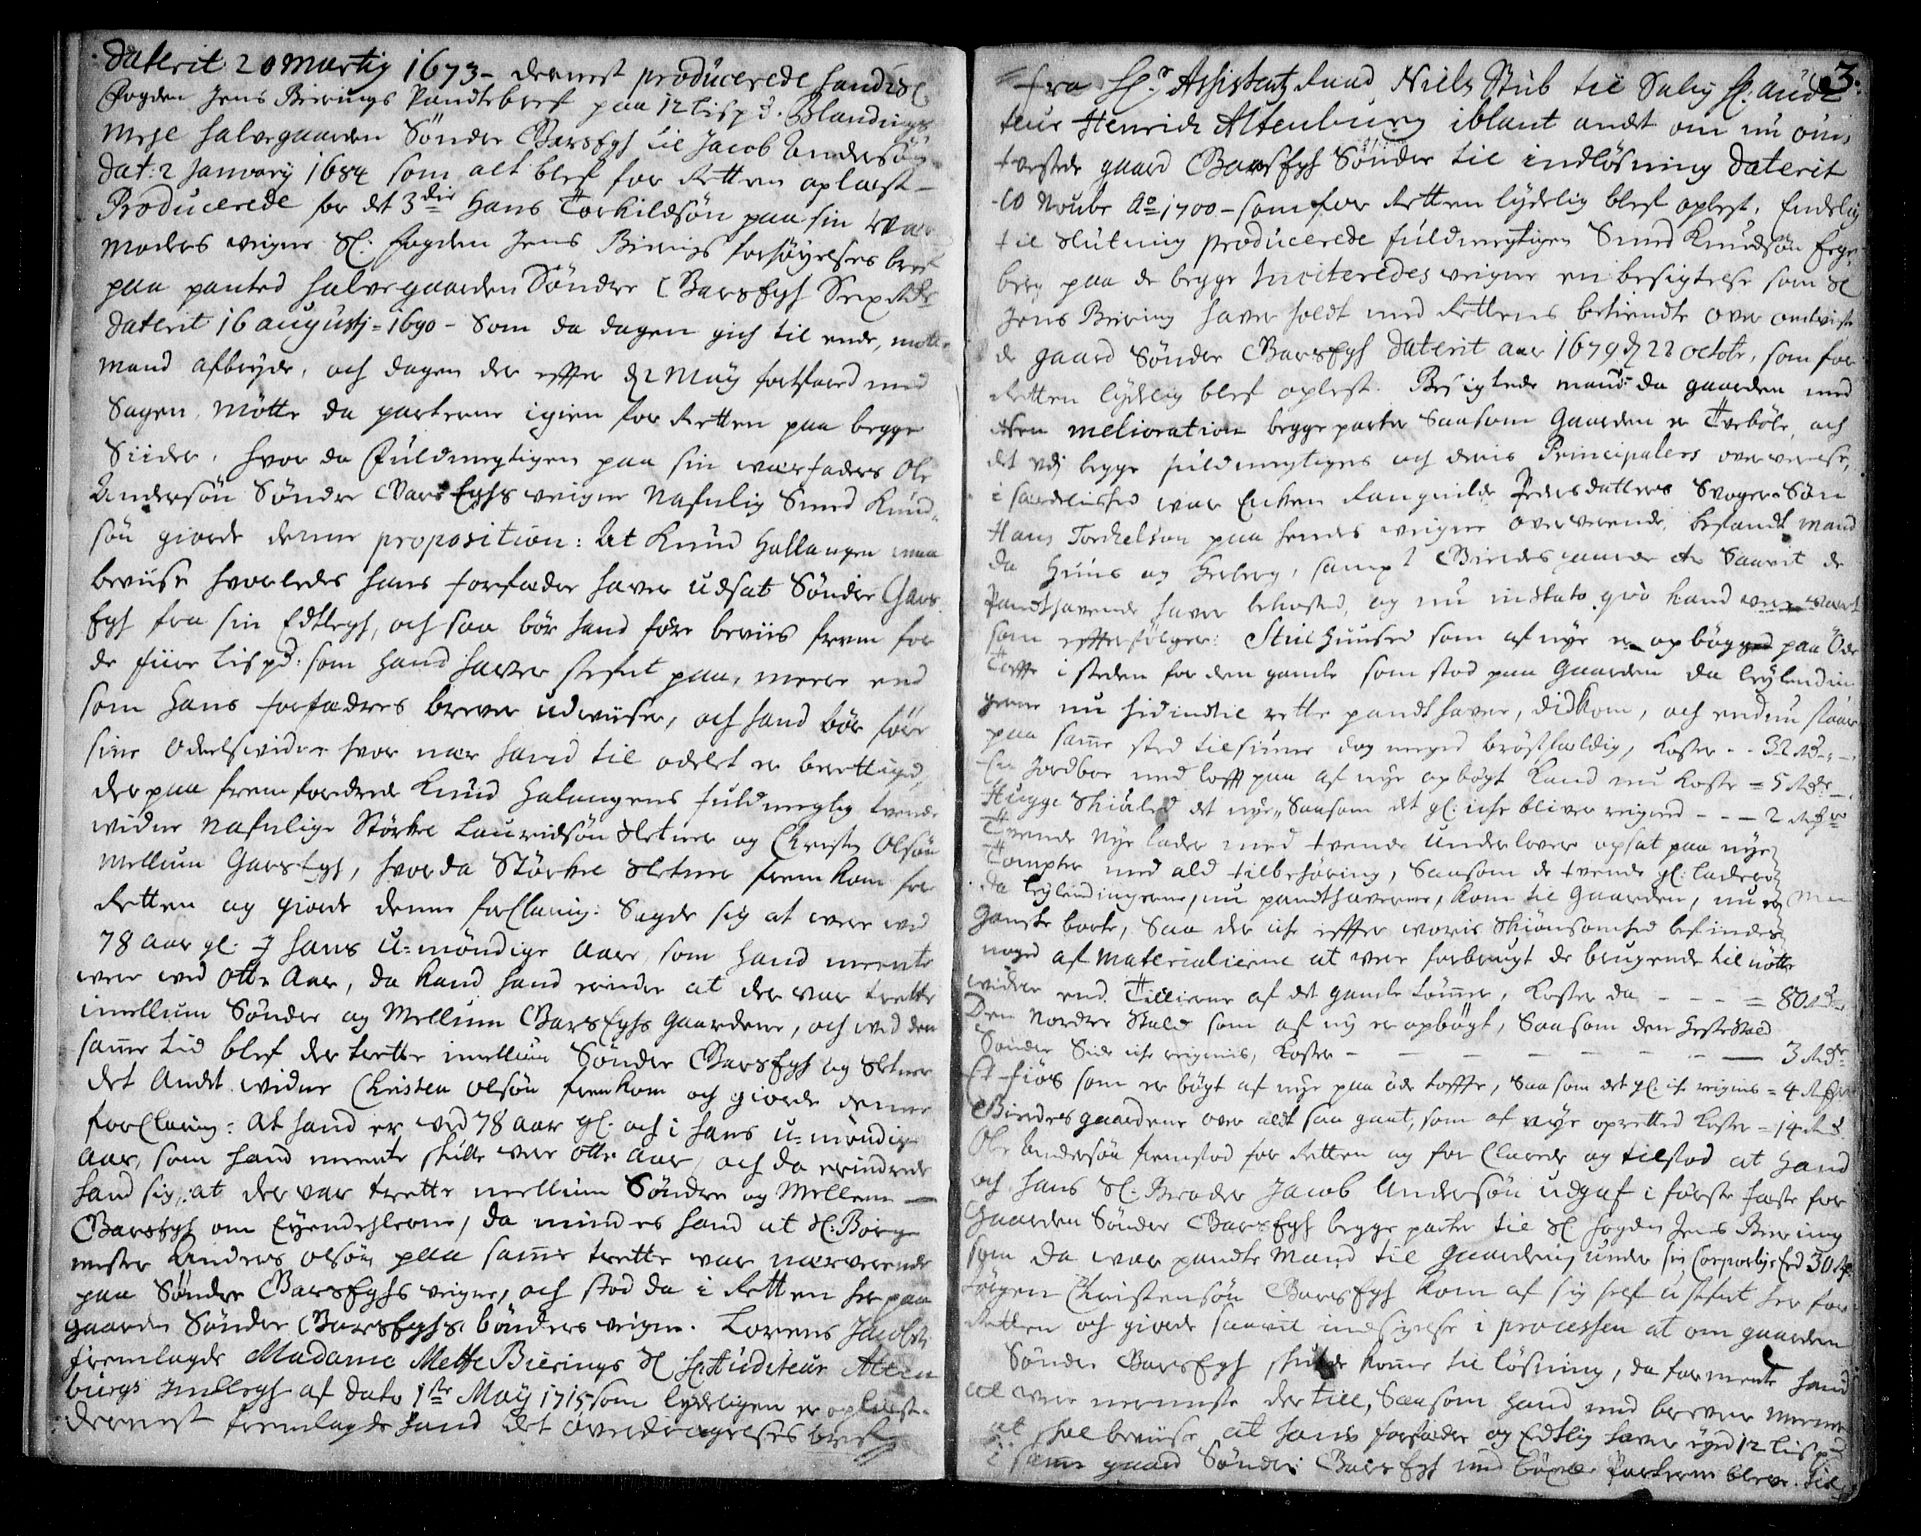 daterit 20 Martij 1673 - dernest producerede hand Sl.
fogden Jens Bierings Pandtebref paa 12 lispd. Blandings
Meel halvegaarden Søndre Garsegh til Jacob Andersøn
dat: 2 January 1684 som alt blef for Retten oplæst -
Producerede for det 3die Hans Torkildsøn paa sin
moders veigne Sl. fogden Jens Bierings forhøyelses bref
paa panted halvegaarden Søndre Garsegh Sex Rdr
daterit 16 augustj = 1690 - Som da dagen gich til ende,
mand afbryde, och dagen der effter d 2 Maij fortfared med
Sagen. Møtte da parterne igien for Retten paa begge
Siider, hvor da Fuldmegtigen paa sin værfaders Ole
Andersøn Søndre Garseghs veigne Nafnlig Smed Knud-
søn giorde denne proposition: At Knud Hallangen maa
beviise hvorledes hans forfædre haver udsat Søndre Gars
Egh fra sin Edtlegh, och saa bør hand føre beviis frem for
de fiire lispd: som hand haver stefnt paa, meere end
som hans forfædres brever udviiser, och hand bør føre
sine Odelsvidne hvor nær hand til odelet er berettiged
der paa fremfordrede Knud Halangens fuldmegtig tvende
vidne Nafnlige Størkel Lauridsøn Sletner og Christen Olsøn
Mellum Garsegh, hvor da Størkel Sletner fremkom for
Retten og giorde denne forClaring: Sagde sig at være ved
78 aar gl. J hans u-møndige Aar, som hand meente
være ved otte Aar, da kand hand erindre at der var trette
imellum Søndre og Mellum Garseghs gaardene, och ved den
samme tid blef der trette imellum Søndre Garsegh og Sletner
det Andet vidne Christen Olsøn fremkom och giorde denne
forClaring: At hand er ved 78 aar gl. och i hans u-møndige
aar, som hand meente skulle være otte aar, och da erindrede
hand sig, at der var trette mellum Søndre og Mellem
Garsegh om Eyendehlerne, da mindes hand at Sl. Borge
mester Anders Olsøn paa samme trette var nærverende
paa Søndre Garseghs veigne, och stod da i Retten her paa
gaarden Søndre Garseghs bønders veigne. Lorens Jacobsen
fremlagde Madame Mette Bierings Sl. Hr. Auditeur Alten
burgs Indlegh af dato 1ste Maij 1715 som lydeligen er oplæst.
dernest fremlagde hand det overdragelses bref
3.
fra Hr Assistentz Raad Niels Stub til Salig Hr. Audi
teur Henrich Altenburg iblant andet om nu om
tvistede gaard Garsegh Søndre til indløsning daterit
10 Novbr Ao 1700 - som for Retten lydelig blef oplest, Endelig
til slutning producerede fuldmegtigen Smed Knudsøn Ege
berg paa de begge Inciteredes veigne en besigtelse som Sl
Jens Biering haver holdt med Rettens betiendte over omtviste
de gaard Søndre Garsegh daterit aar 1679 d 22 octobr, som for
Retten lydelig blef oplest. Besigtede mand da gaarden med
den melioration begge parter Saasom Gaarden er Tvebøle, och
det ved begge fuldmegtiges och deris Principalers oververelse,
i særdelished var Enken Ragnilde Pedersdatters Svoger-Søn
Hans Torchelsøn paa hendes veigne oververende, befandt mand
da Huus og Herberg, sampt Giærdesgaarde etc. Saavit de
Pandthavende haver bekosted, og nu in statu quo kand være værd
som effterfølger: Stuehuused som af nye er opbygged paa Øde
Toffte i steden for den gamle som stod paa Gaarden da leylændin
gerne nu hidindtil rette pandthaver, didkom, och endnu staar
paa samme sted tilsiune dog meged brøstfældig, koster - - 32 Rdr -
En Jordboe med lofft paa af nye opbygt kand nu koste = 5 Rdr -
Hugge Skiuled det nye, Saasom det gl: iche bliver reigned - - - 2 Rdr
Tvende nye lader med tvende underlover opsat paa nye
Tompter med ald tilbehøring, Saasom de tvende gl: lader
da leylendingerne, nu pandthaverne, kom til Gaarden, nu er
Ganske borte, Saa der iche effter voris Skiønsomhed befindes
noged af materialierne at være forbrugt de brugende til nøtte
videre end Tillierne af det gamle tømmer, koster da - - - = 80 Rdr
Den Nordre Stald som af ny er opbygt, Saasom den heste Stald
Søndre Side iche reignis, koster - - - - - - - - 3 Rdr
Et fiøs som er bøgt af nye paa øde toffte, saasom det gl. iche reignis = 4 Rdr
Gierdesgaardene over aldt saa gandt, som af nye opretted koster = 14 Rdr
Ole Andersøn fremstod for Retten og for Clarede og tilstod at hand
och hans Sl. Broder Jacob Andersøn udgaf i første fæste for
Gaarden Søndre Garsegh begge parter til Sl fogden Jens Biering
som da var pandte Mand til Gaarden, under sin Corporlige Eed 30 Rdr
Jørgen Christensøn Garsegh kom af sig self ustefnt her for
Retten och giorde saavit indsigelse i processen at om gaarden
Søndre Garsegh skulde komme til løsning, da formente hand
at være nermeste dertill, Saasom hand med brever meener
at skal beviise at hans forfædre og Edtlig haver eyed 12 lispd
i samme gaard Søndre Garsegh med bøxel. Parterne bleve til